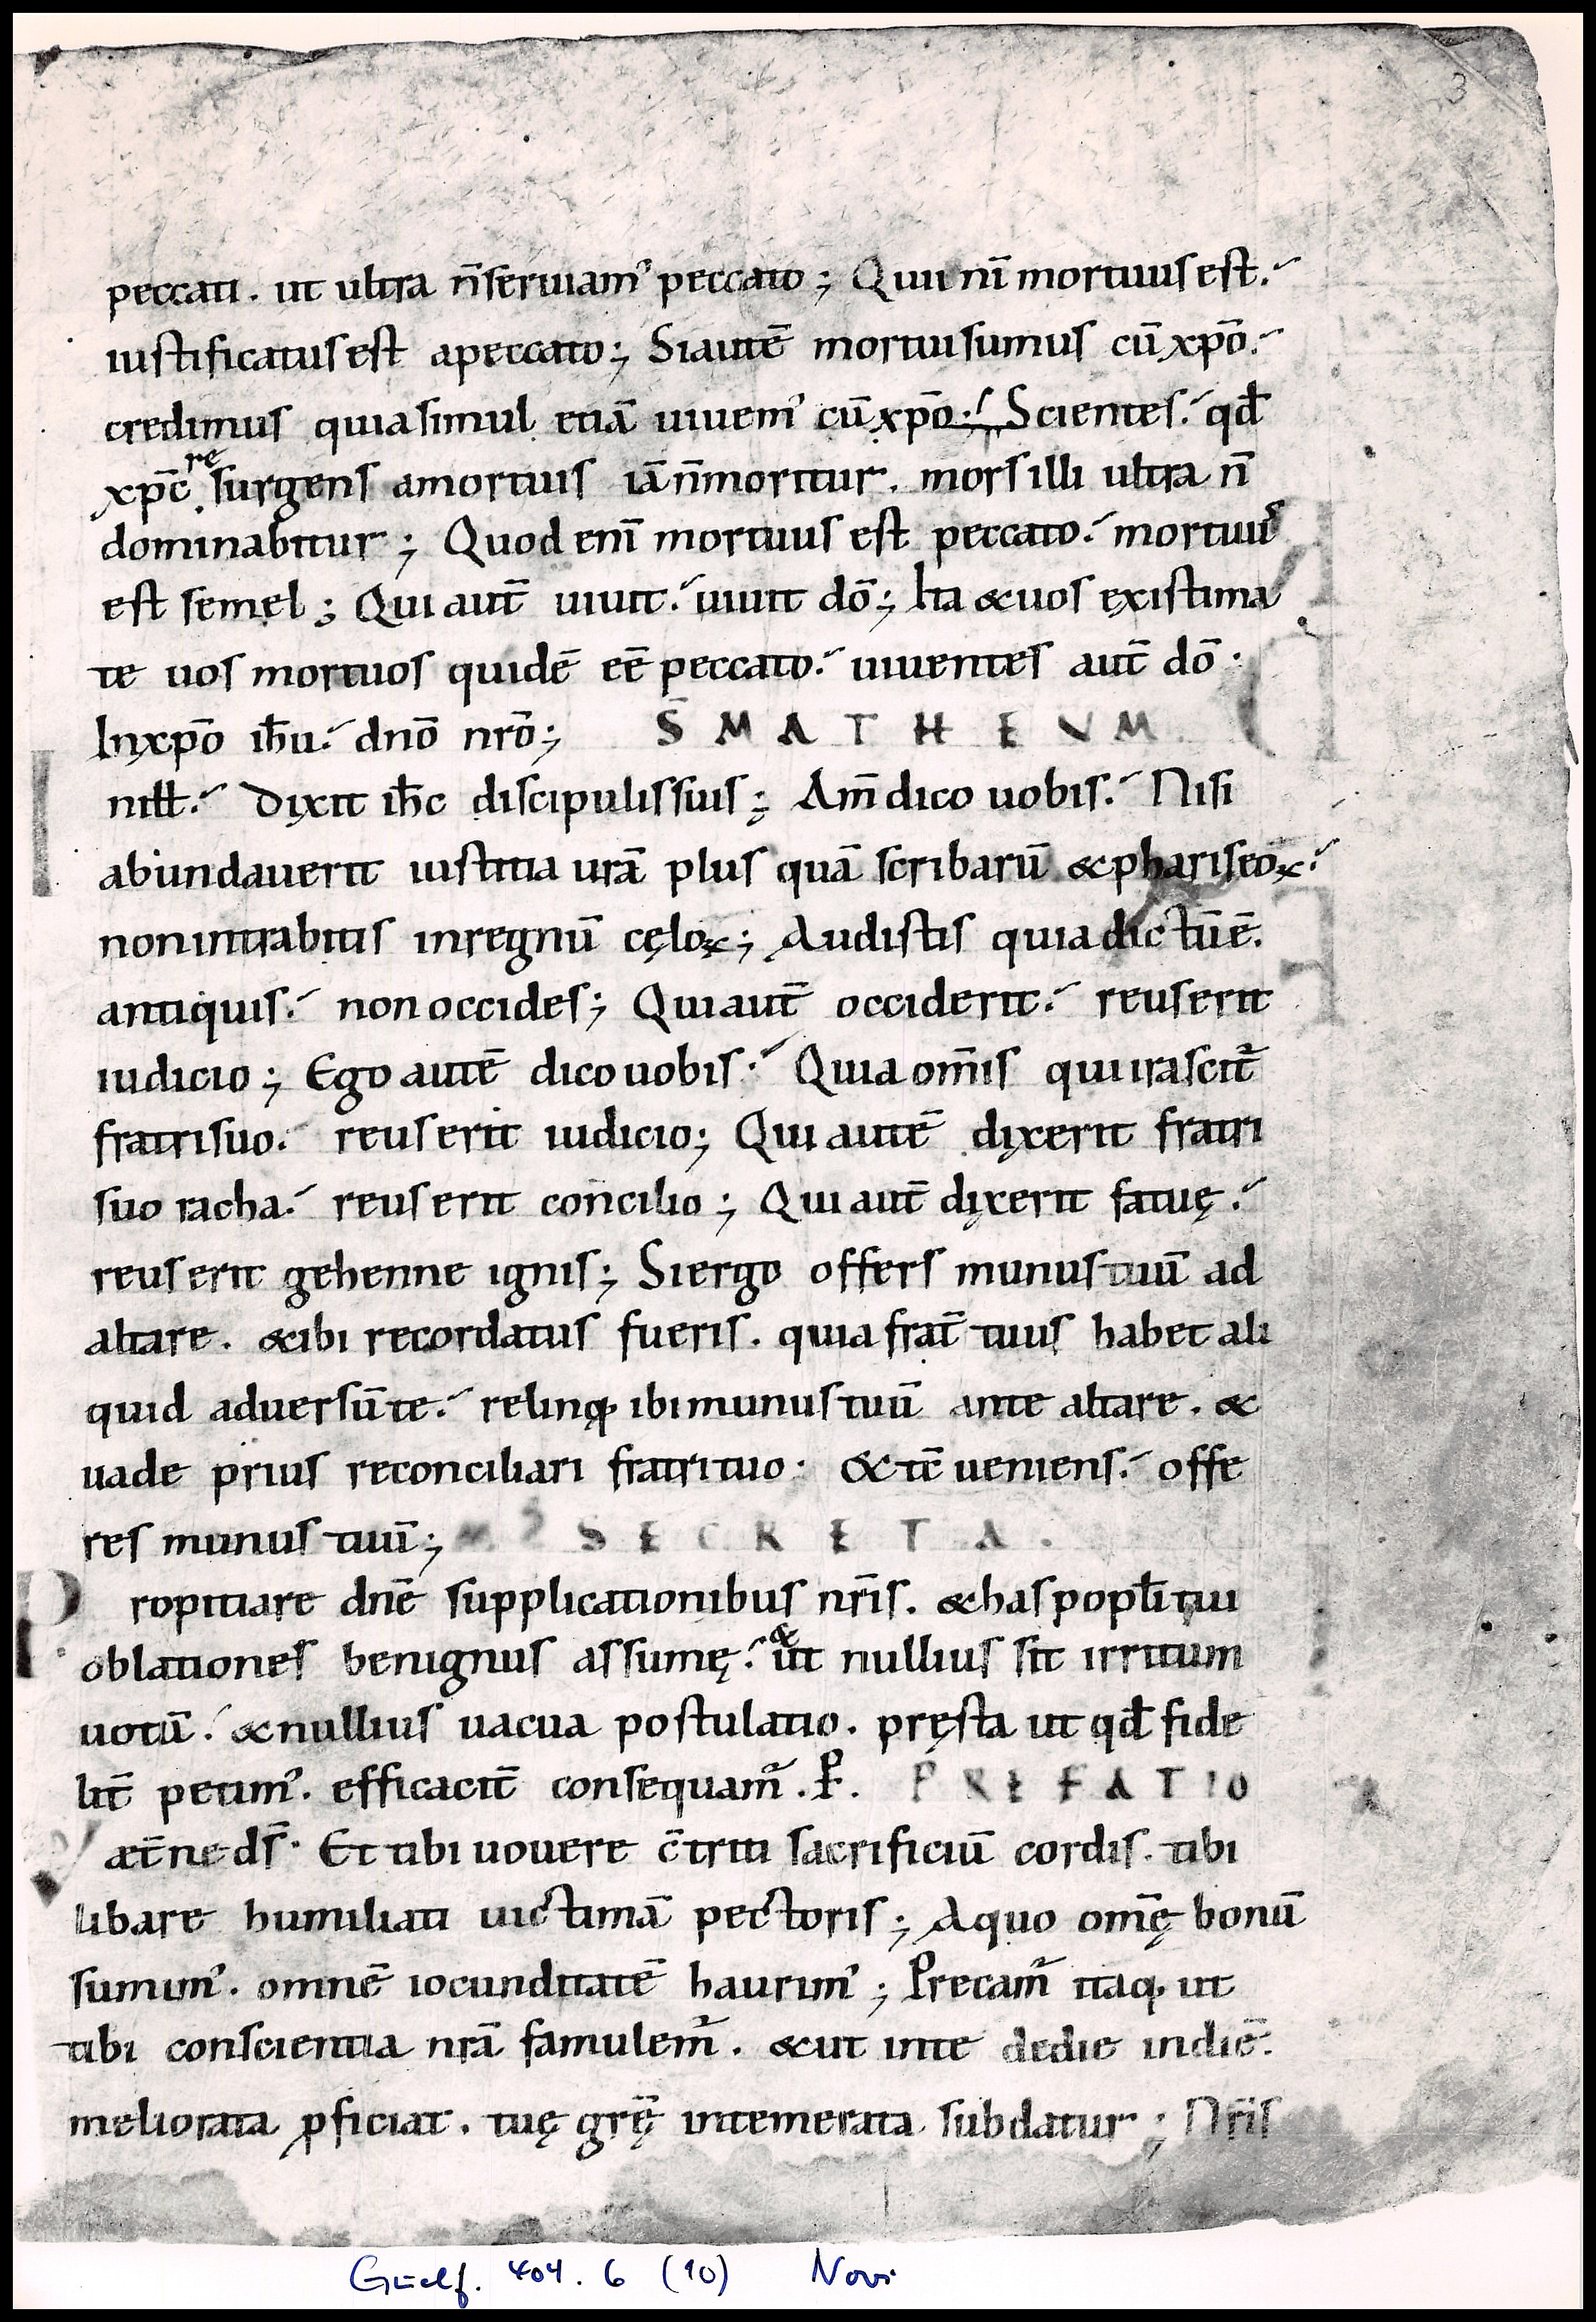 3
peccati. ut ultra n̄ seruiam᾽ peccato; Qui ni̅ mortuus est.
iustificatus est a peccato; Si aute̅ mortui sumus cu̅ xpo̅.
credimus quia simul etia̅ uiuem᾽ cu̅ xpo̅. Scientes. qd̅
xpc̅ resurgens a mortuis ia̅ n̅ moritur. mors illi ultra n̅
dominabitur; Quod eni̅ mortuus est peccato. mortuus
est semel; Qui aut̅ uiuit. uiuit do̅; Ita & uos existima
te uos mortuos quide̅ ee̅ peccato. uiuentes aut̅ do̅.
In xpo̅ ih̅u. dno̅ nro̅; S̅ MATHEUM
I nill̅. Dixit ih̅c discipulis suis; Am̅ dico uobis. Nisi
abundauerit iustitia ura̅ plus qua̅ scribaru̅ & phariseoꝝ.
non intrabitis in regnu̅ cęloꝝ; Audistis quia dictu̅ e̅.
antiquis. non occides; Qui aut̅ occiderit. reus erit
iudicio; Ego aute̅ dico uobis. Quia om̅is qui irascit᷑
fratri suo. reus erit iudicio; Qui aute̅ dixerit fratri
suo racha. reus erit concilio; Qui aut̅ dixerit fatuę.
reus erit gehenne ignis; Si ergo offers munus tuu̅ ad
altare. & ibi recordatus fueris. quia frat̅ tuus habet ali
quid aduersu̅ te. relinq; ibi munus tuu̅ ante altare. &
uade prius reconciliari fratri tuo. & te̅ ueniens. offe
res munus tuu̅; SECRETA.
P ropitiare dne̅ supplicationibus nr̅is. & has popl̅i tui
oblationes benignus assumę. & ut nullius sit irritum
uotu̅. & nullius uacua postulatio. pręsta ut qd̅ fide
lit̅ petim᾽. efficacit̅ consequam᷑. P̲. PREFATIO
æt̅ne ds̅. Et tibi uouere c̅triti sacrificiu̅ cordis. tibi
libare humiliati uictima̅ pectoris; A quo om̅ę bonu̅
sumim᾽. omne̅ iocunditate̅ haurim᾽; Precam᷑ itaq; ut
tibi conscientia nra̅ famulem᷑. & ut in te de die in die̅.
meliorata ꝓficiat. tuę grę̅ intemerata subdatur; Nr̅is
Guelf. 404. 6 (10) Novi